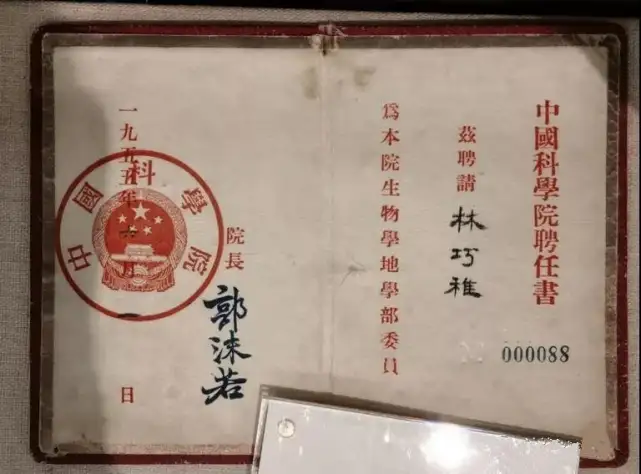 中國科學院聘任書
茲聘請
林巧稚
爲本院生物學地學部委員
院長
郭沫若
一九五五年六月一日
中國科學院
000088